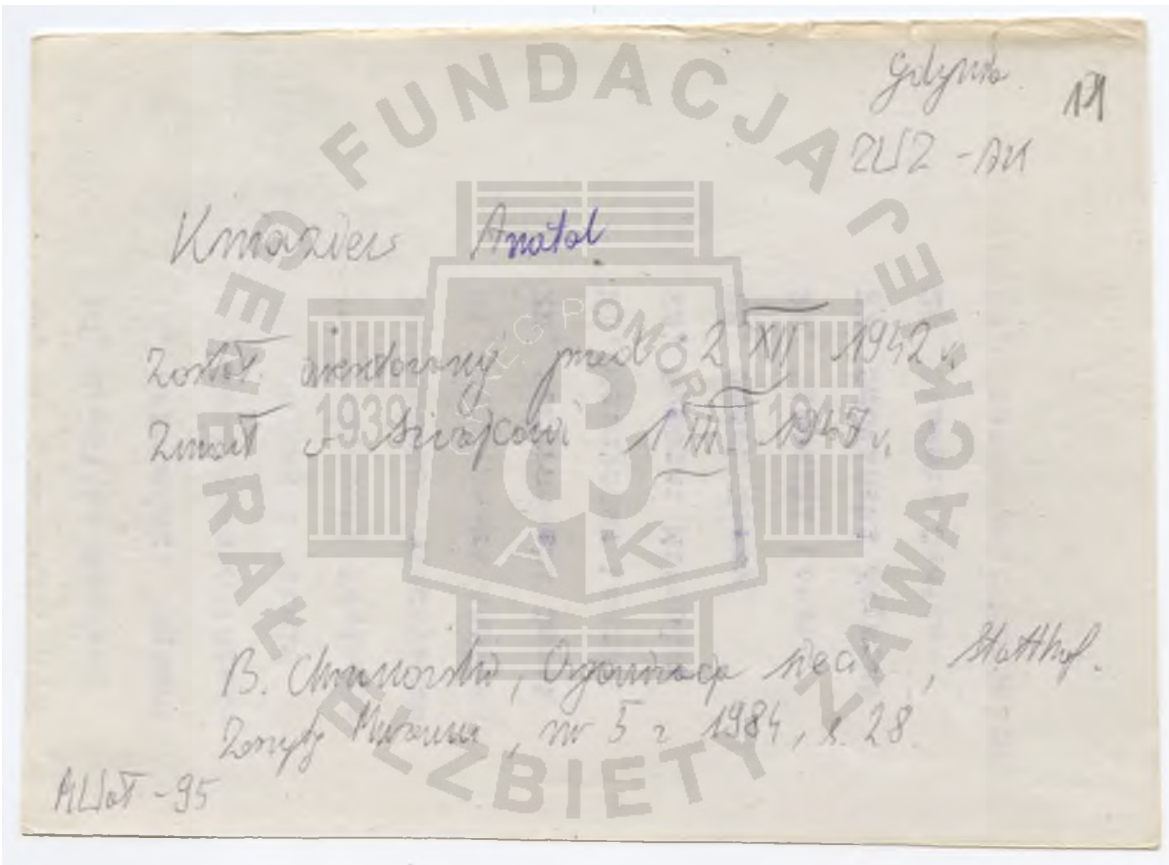 Gdynia
ZWZ - AK
Kniaziew Anatol
Został aresztowany przed 2 XII 1942 r.
Zmarł w Szwajcarii 1 III 1947 r.
B. Chrzanowski, Organizacja sieci, Stutthof.
Zeszyty Muzeum, nr 5 z 1984, s. 28.
MWoł - 95
FUNDACJA GENERAŁ ELŻBIETY ZAWACKIEJ
OKRĘG POMORZE
1939 1945
AK